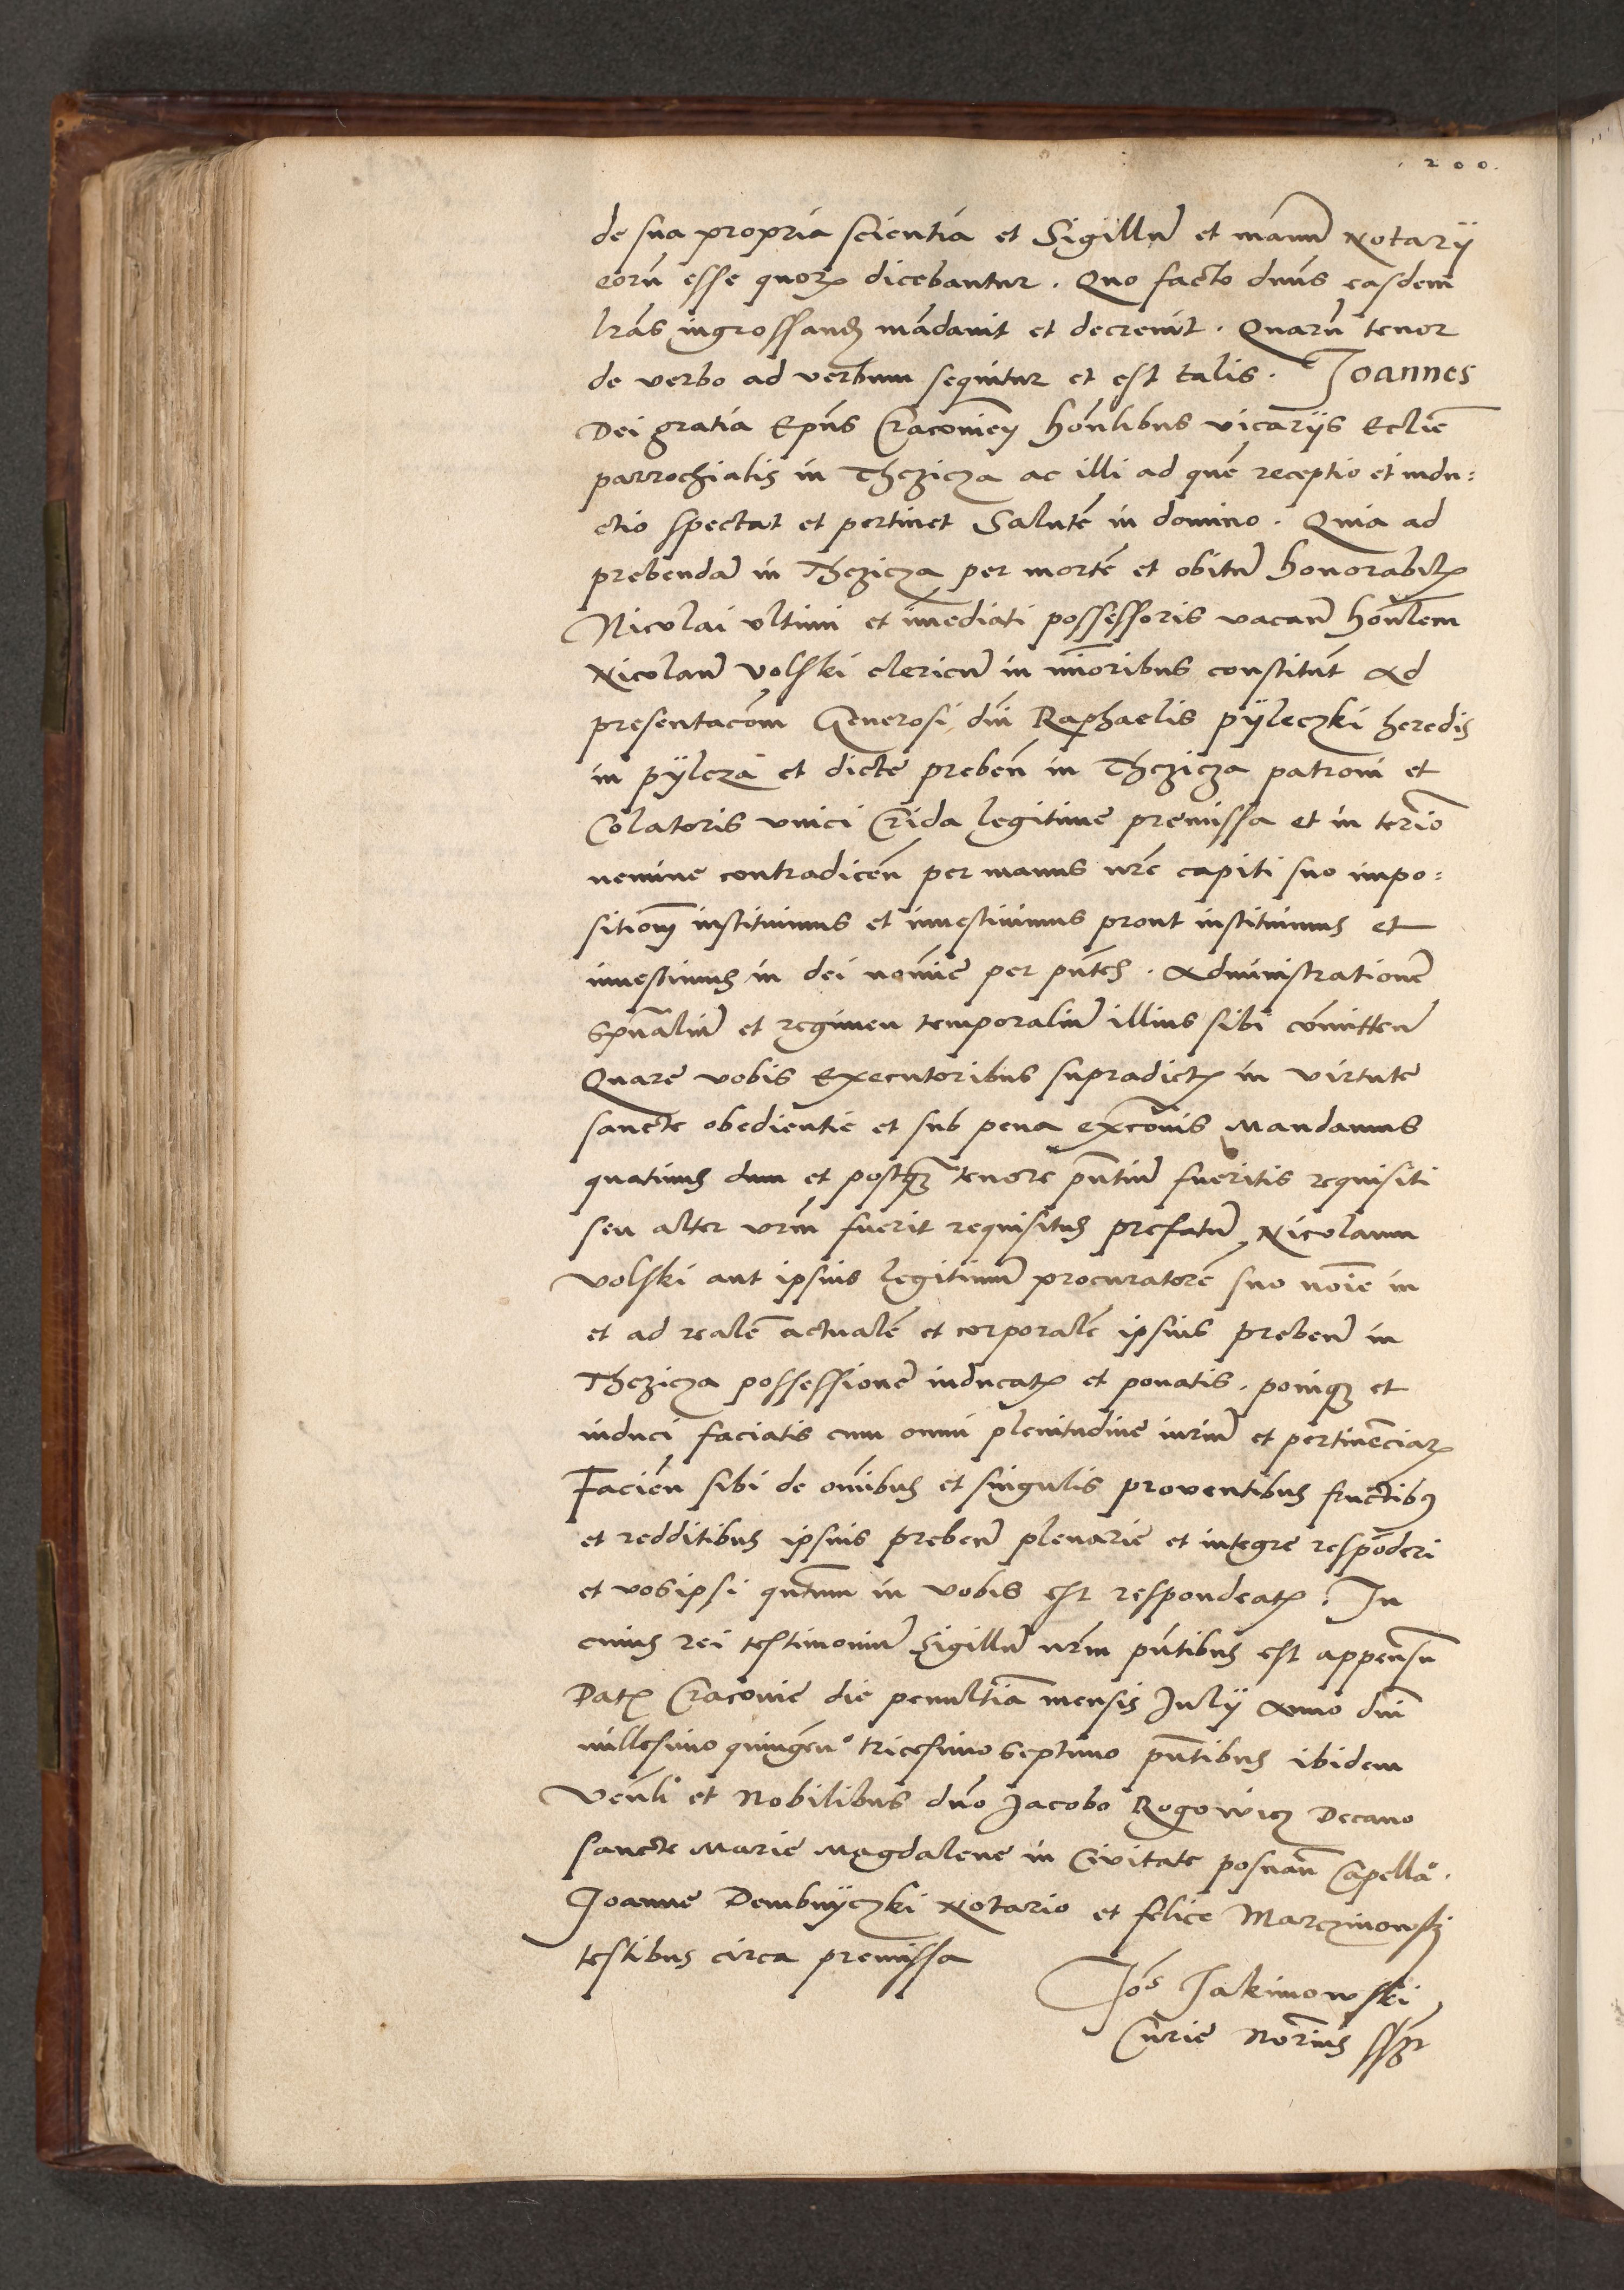 200.
de sua propria scientia et Sigillũ et manũ Notarij
eorũ esse quorꝝ dicebantur. Quo facto dnũs easdem
lrãs ingrossanđ mãdavit et decrevit. Quarũ tenor
de verbo ad verbum sequitur et est talis. Joannes
Dei gratia Epũs Cracovieñ honlibus vicarijs Ecclie
parrochialis in Thczicza ac illi ad quẽ receptio et indu:
ctio spectat et pertinet Salutẽ in domino. Quia ad
prebendã in Thczicza per mortẽ et obitũ honorabilꝭ
Nicolai ultimi et imediati possessoris vacañ honlem
Nicolaũ Volski clericũ in mioribus constitut̃ Ad
presentacõm Generosi dñi Raphaelis pÿleczki heredis
in pÿlcza et dicte prebeñ in Thczicza patroni et
Colatoris unici Crida legitime premissa et in term̃o
nemine contradiceñ per manus nr̃e capiti suo impo:
sitionẽ instituimus et investivimus prout instituimus et
investimus in dei nomie per pñtes. Administrationẽ
spũaliũ et regimen temporaliũ illius sibi com̃itteñ
Quare vobis Executoribus supradictꝭ in virtute
sancte obedientie et sub pena excõis Mandamus
quatinus dum et postꝗ̃ tenore pñtiũ fueritis requisiti
seu alter vr̃m fuerit requisitus prefatũ Nicolaum
Volski aut ipsius legitimũ procuratorẽ suo noĩe in
et ad realẽ actualẽ et corporalẽ ipsius prebeñ in
Thczicza possessionẽ inducatꝭ et ponatis. poniqꝫ et
induci faciatis cum omni plenitudine iuriũ et pertinẽciarꝝ
Facieñ sibi de om̃ibus et singulis proventibus fructibꝰ
et redditibus ipsius prebeñ plenarie et integre respõderi
et vosipsi qũtum in vobis est respondeatꝭ. In
cuius rei testimoniũ Sigillũ nr̃m pñtibus est appensũ
Datꝭ Cracovie die penultia mensis Julij Anno dñi
millesimo quingẽnᵒ tricesimo septimo pñtibus ibidem
Veñli et Nobilibus dño Jacobo Rogowicz Decano
sancte Marie Magdalene in Civitate posnañ Capellã.
Joanne Dembnÿczki Notario et felice Marczinowski
testibus circa premissa
Joẽs Jakimowski
Curie Norius sszt